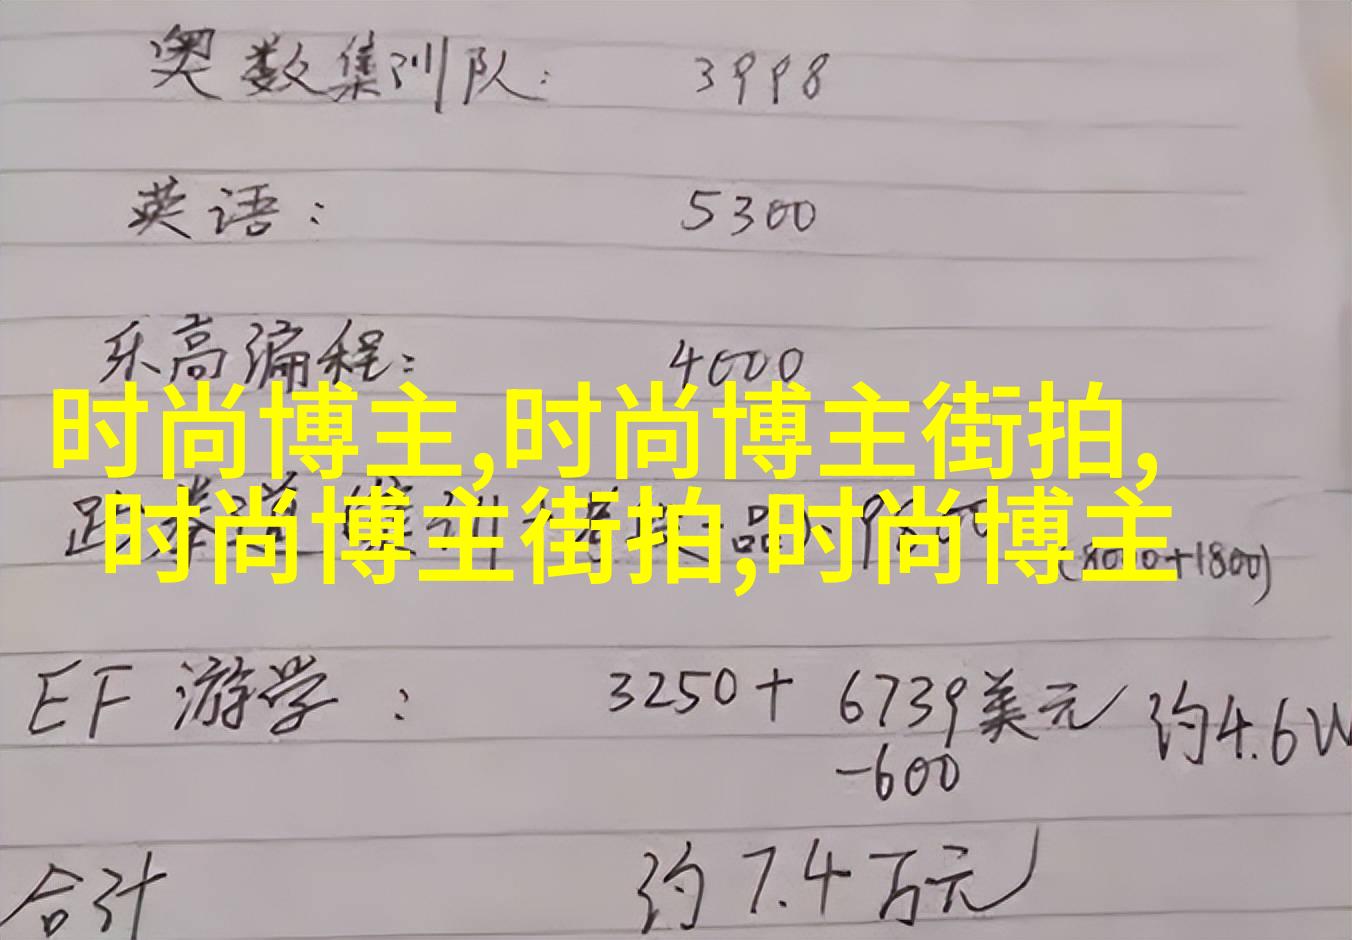 奥数集训队: 3998
英语: 5300
乐高编程: 4000
时尚博主,时尚博主街拍,
时尚博主街拍,时尚博主
跆拳道 9800 (8000+1800)
EF 游学: 3250+ 6739美元 约4.6W
-600
合计 约7.4万元